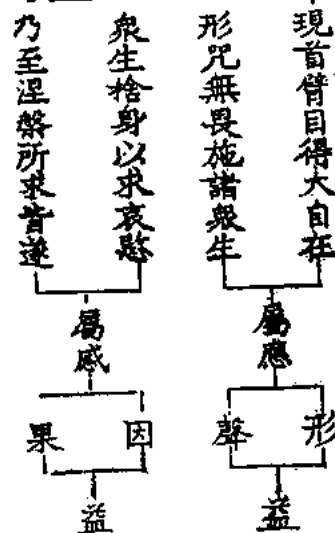 現首臂目得大自在
形咒無畏施諸眾生
屬應
形
聲
益
眾生捨身以求哀愍
乃至涅槃所求皆遂
屬感
因
果
益